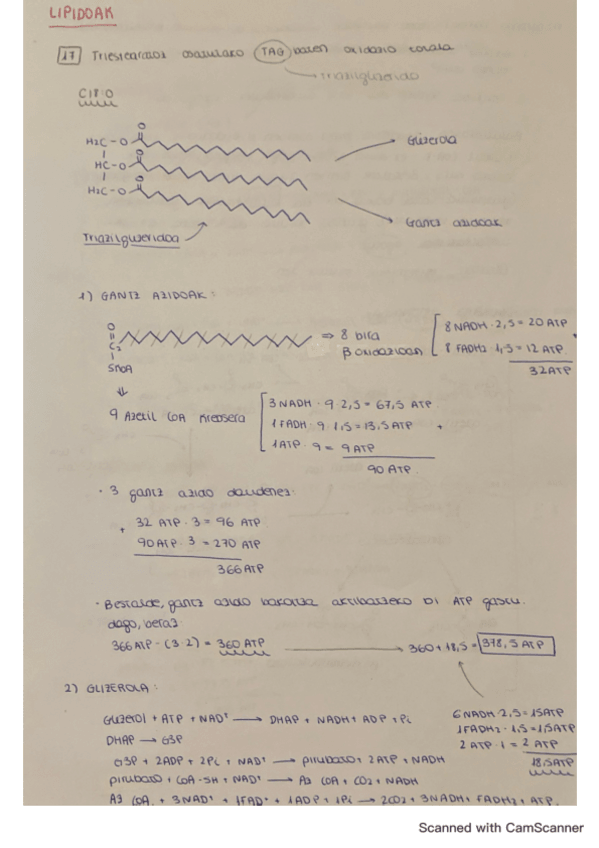 LIPIDOAK
17 Triestearatoz osatutako TAG baten oxidazio totala
triazilglizerido
C18:0
H2C-O O
HC-O O
H2C-O O
Glizerola
Gantz azidoak
Triazilglizeridoa
1) GANTZ AZIDOAK:
O
C2
SCoA
⇒ 8 bira
β oxidazioan
8 NADH · 2,5 = 20 ATP
8 FADH2 · 1,5 = 12 ATP
32 ATP
9 Azetil CoA
3 NADH · 9 · 2,5 = 67,5 ATP
1 FADH · 9 · 1,5 = 13,5 ATP +
1 ATP · 9 = 9 ATP
90 ATP
· 3 gantz azido daudenez:
+ 32 ATP · 3 = 96 ATP
90 ATP · 3 = 270 ATP
366 ATP
· Bestalde, gantz azido bakoitza aktibatzeko bi ATP gastu
dago, beraz:
366 ATP - (3·2) = 360 ATP → 360 + 18,5 = 378,5 ATP
2) GLIZEROLA:
Glizerol + ATP + NAD+ → DHAP + NADH + ADP + Pi
DHAP → G3P
G3P + 2ADP + 2Pi + NAD+ → pirubato + 2ATP + NADH
pirubato + CoA-SH + NAD+ → Az CoA + CO2 + NADH
Az CoA + 3NAD+ + 1FAD+ + 1ADP + 1Pi → 2CO2 + 3NADH + FADH2 + ATP
6 NADH · 2,5 = 15 ATP
1 FADH2 · 1,5 = 1,5 ATP
2 ATP · 1 = 2 ATP
18,5 ATP
Scanned with CamScanner